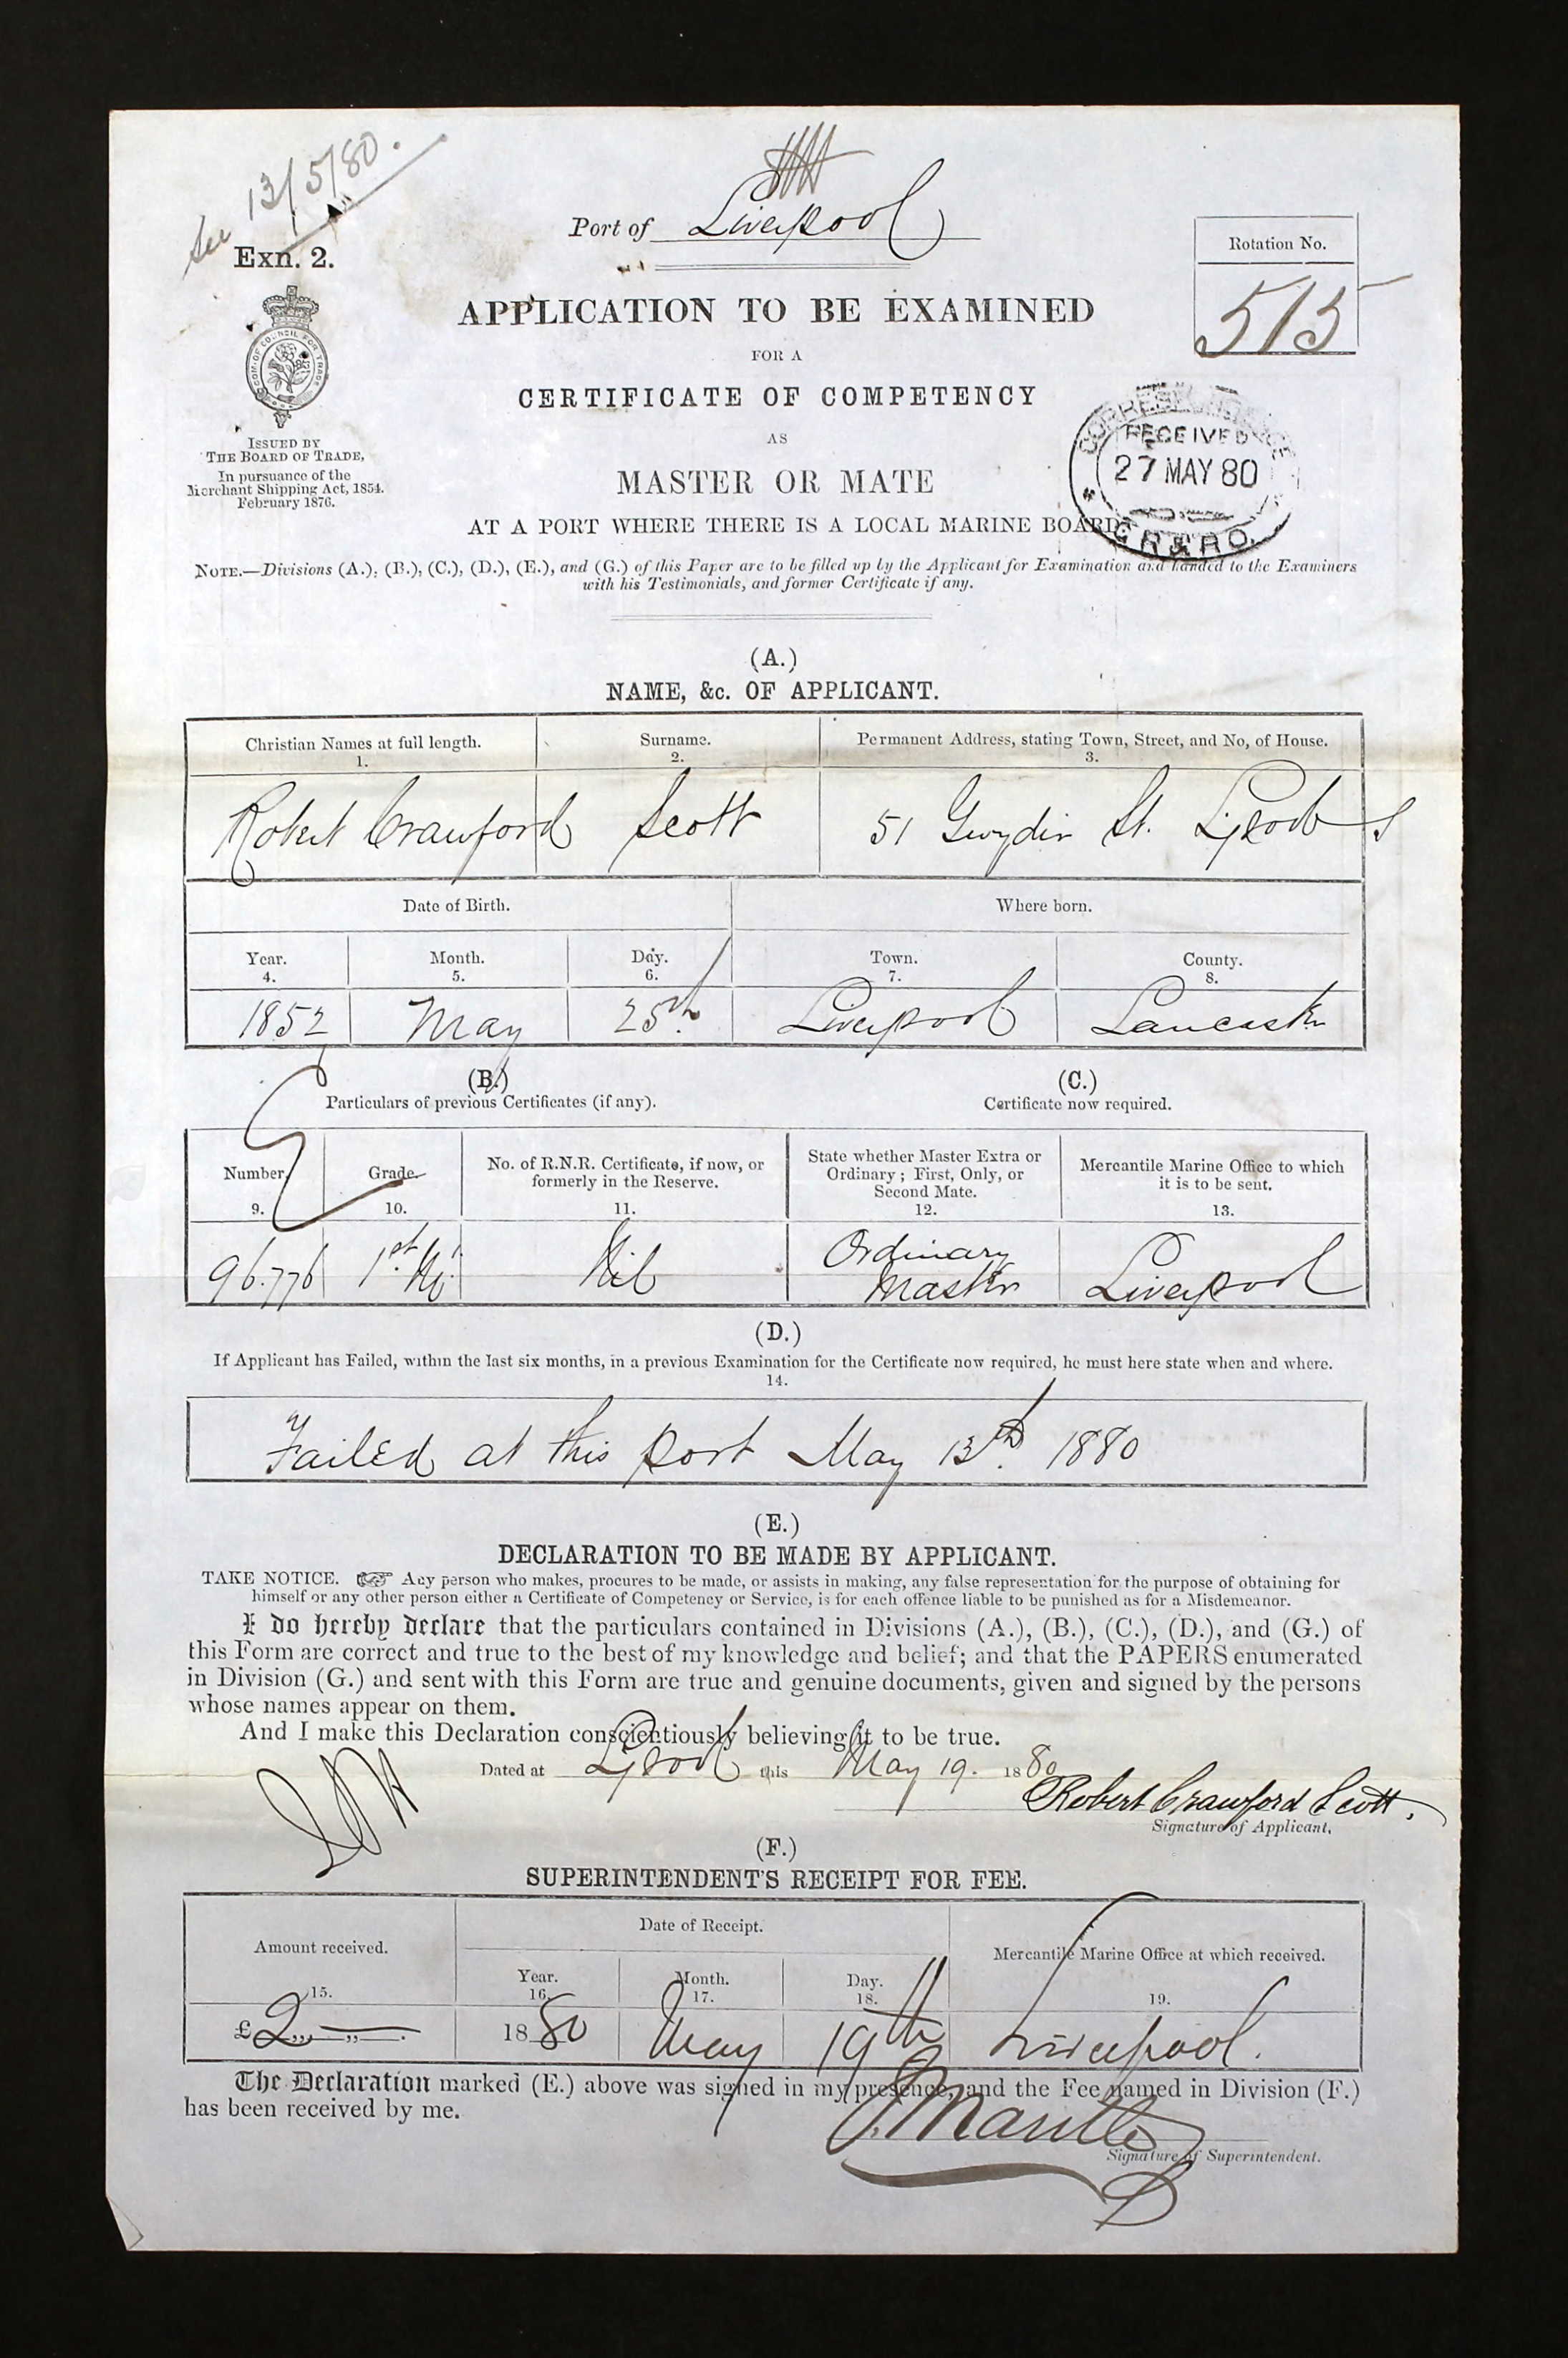 See 13/5/80.
Port of Liverpool
Exn. 2.
Rotation No.
515
APPLICATION TO BE EXAMINED
FOR A
CERTIFICATE OF COMPETENCY
AS
MASTER OR MATE
AT A PORT WHERE THERE IS A LOCAL MARINE BOARD.
COM: OF COUNCIL FOR TRADE
ISSUED BY
THE BOARD OF TRADE,
In pursuance of the
Merchant Shipping Act, 1854.
February 1876.
RECEIVED
27 MAY 80
NOTE.—Divisions (A.), (B.), (C.), (D.), (E.), and (G.) of this Paper are to be filled up by the Applicant for Examination and handed to the Examiners
with his Testimonials, and former Certificate if any.
(A.)
NAME, &c. OF APPLICANT.
Christian Names at full length. Surname. Permanent Address, stating Town, Street, and No, of House.
1. 2. 3.
Robert Crawford Scott 51 Gwydir St. L'pool S
Date of Birth. Where born.
Year. Month. Day. Town. County.
4. 5. 6. 7. 8.
1852 May 25th Liverpool Lancaster
(B.) (C.)
Particulars of previous Certificates (if any). Certificate now required.
Number. Grade. No. of R.N.R. Certificate, if now, or formerly in the Reserve. State whether Master Extra or Ordinary; First, Only, or Second Mate. Mercantile Marine Office to which it is to be sent.
9. 10. 11. 12. 13.
96.776 1st M. Nil Ordinary Master Liverpool
(D.)
If Applicant has Failed, within the last six months, in a previous Examination for the Certificate now required, he must here state when and where.
14.
Failed at this port May 13th. 1880
(E.)
DECLARATION TO BE MADE BY APPLICANT.
TAKE NOTICE. Any person who makes, procures to be made, or assists in making, any false representation for the purpose of obtaining for
himself or any other person either a Certificate of Competency or Service, is for each offence liable to be punished as for a Misdemeanor.
I do hereby declare that the particulars contained in Divisions (A.), (B.), (C.), (D.), and (G.) of
this Form are correct and true to the best of my knowledge and belief; and that the PAPERS enumerated
in Division (G.) and sent with this Form are true and genuine documents, given and signed by the persons
whose names appear on them.
And I make this Declaration conscientiously believing it to be true.
Dated at L'pool this May 19. 1880
Robert Crawford Scott.
Signature of Applicant.
(F.)
SUPERINTENDENT'S RECEIPT FOR FEE.
Amount received. Date of Receipt. Mercantile Marine Office at which received.
Year. Month. Day.
15. 16. 17. 18. 19.
£2 „ — „ —. 1880 May 19th Liverpool.
The Declaration marked (E.) above was signed in my presence, and the Fee named in Division (F.)
has been received by me.
Signature of Superintendent.